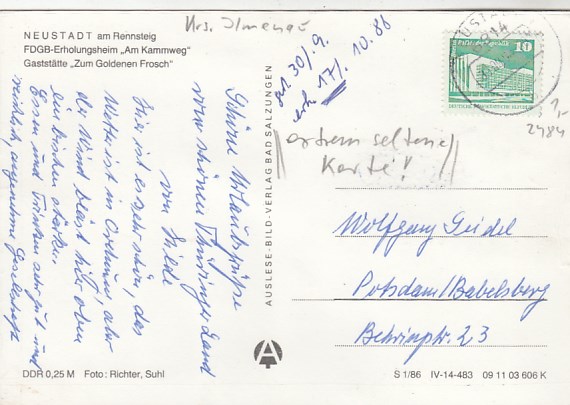 Krs. Ilmenau
NEUSTADT am Rennsteig
FDGB-Erholungsheim „Am Kammweg"
Gaststätte „Zum Goldenen Frosch"
30/9.
17/. 10.86
10
DEUTSCHE DEMOKRATISCHE REPUBLIK
1,-
2484
extrem seltene
Karte!
Schöne Urlaubsgrüße
vom schönen Thüringer Land
von Hilde
Hier ist es sehr schön, das
Wetter ist in Ordnung, aber
der Wind bläst hier oben
ein bisschen stärker.
Essen und Trinken sehr gut und
reichlich, angenehme Gesellschaft
AUSLESE-BILD-VERLAG BAD SALZUNGEN
Wolfgang Geidel
Potsdam/Babelsberg
Behringstr. 23
DDR 0,25 M Foto: Richter, Suhl
S 1/86 IV-14-483 09 11 03 606 K